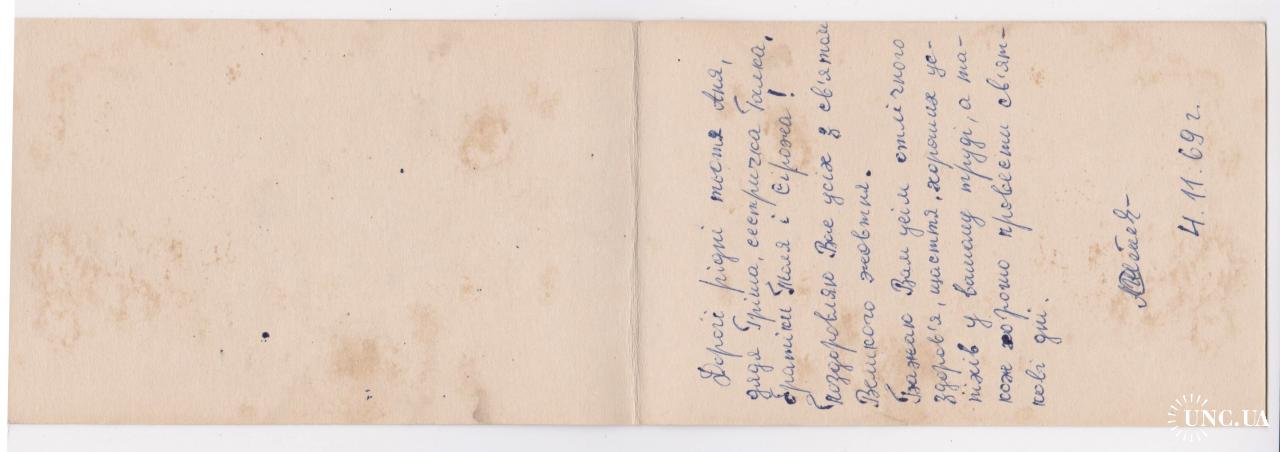 Дорогі рідні тьотя Аня,
дядя Гріша, сестричка Галка,
братіки Толя і Сірожа!
Поздоровляю Вас усіх з св'ятом
Великого жовтня.
Бажаю Вам усім отлічного
здоров'я, щастття, хороших ус-
піхів у вашому труді, а та-
кож хорошо провести св'ят-
кові дні.
4.11.69 г.
UNC.UA